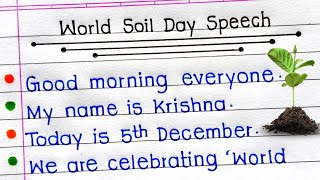 World Soil Day Speech
Good morning everyone.
My name is Krishna.
Today is 5th December.
We are celebrating 'World